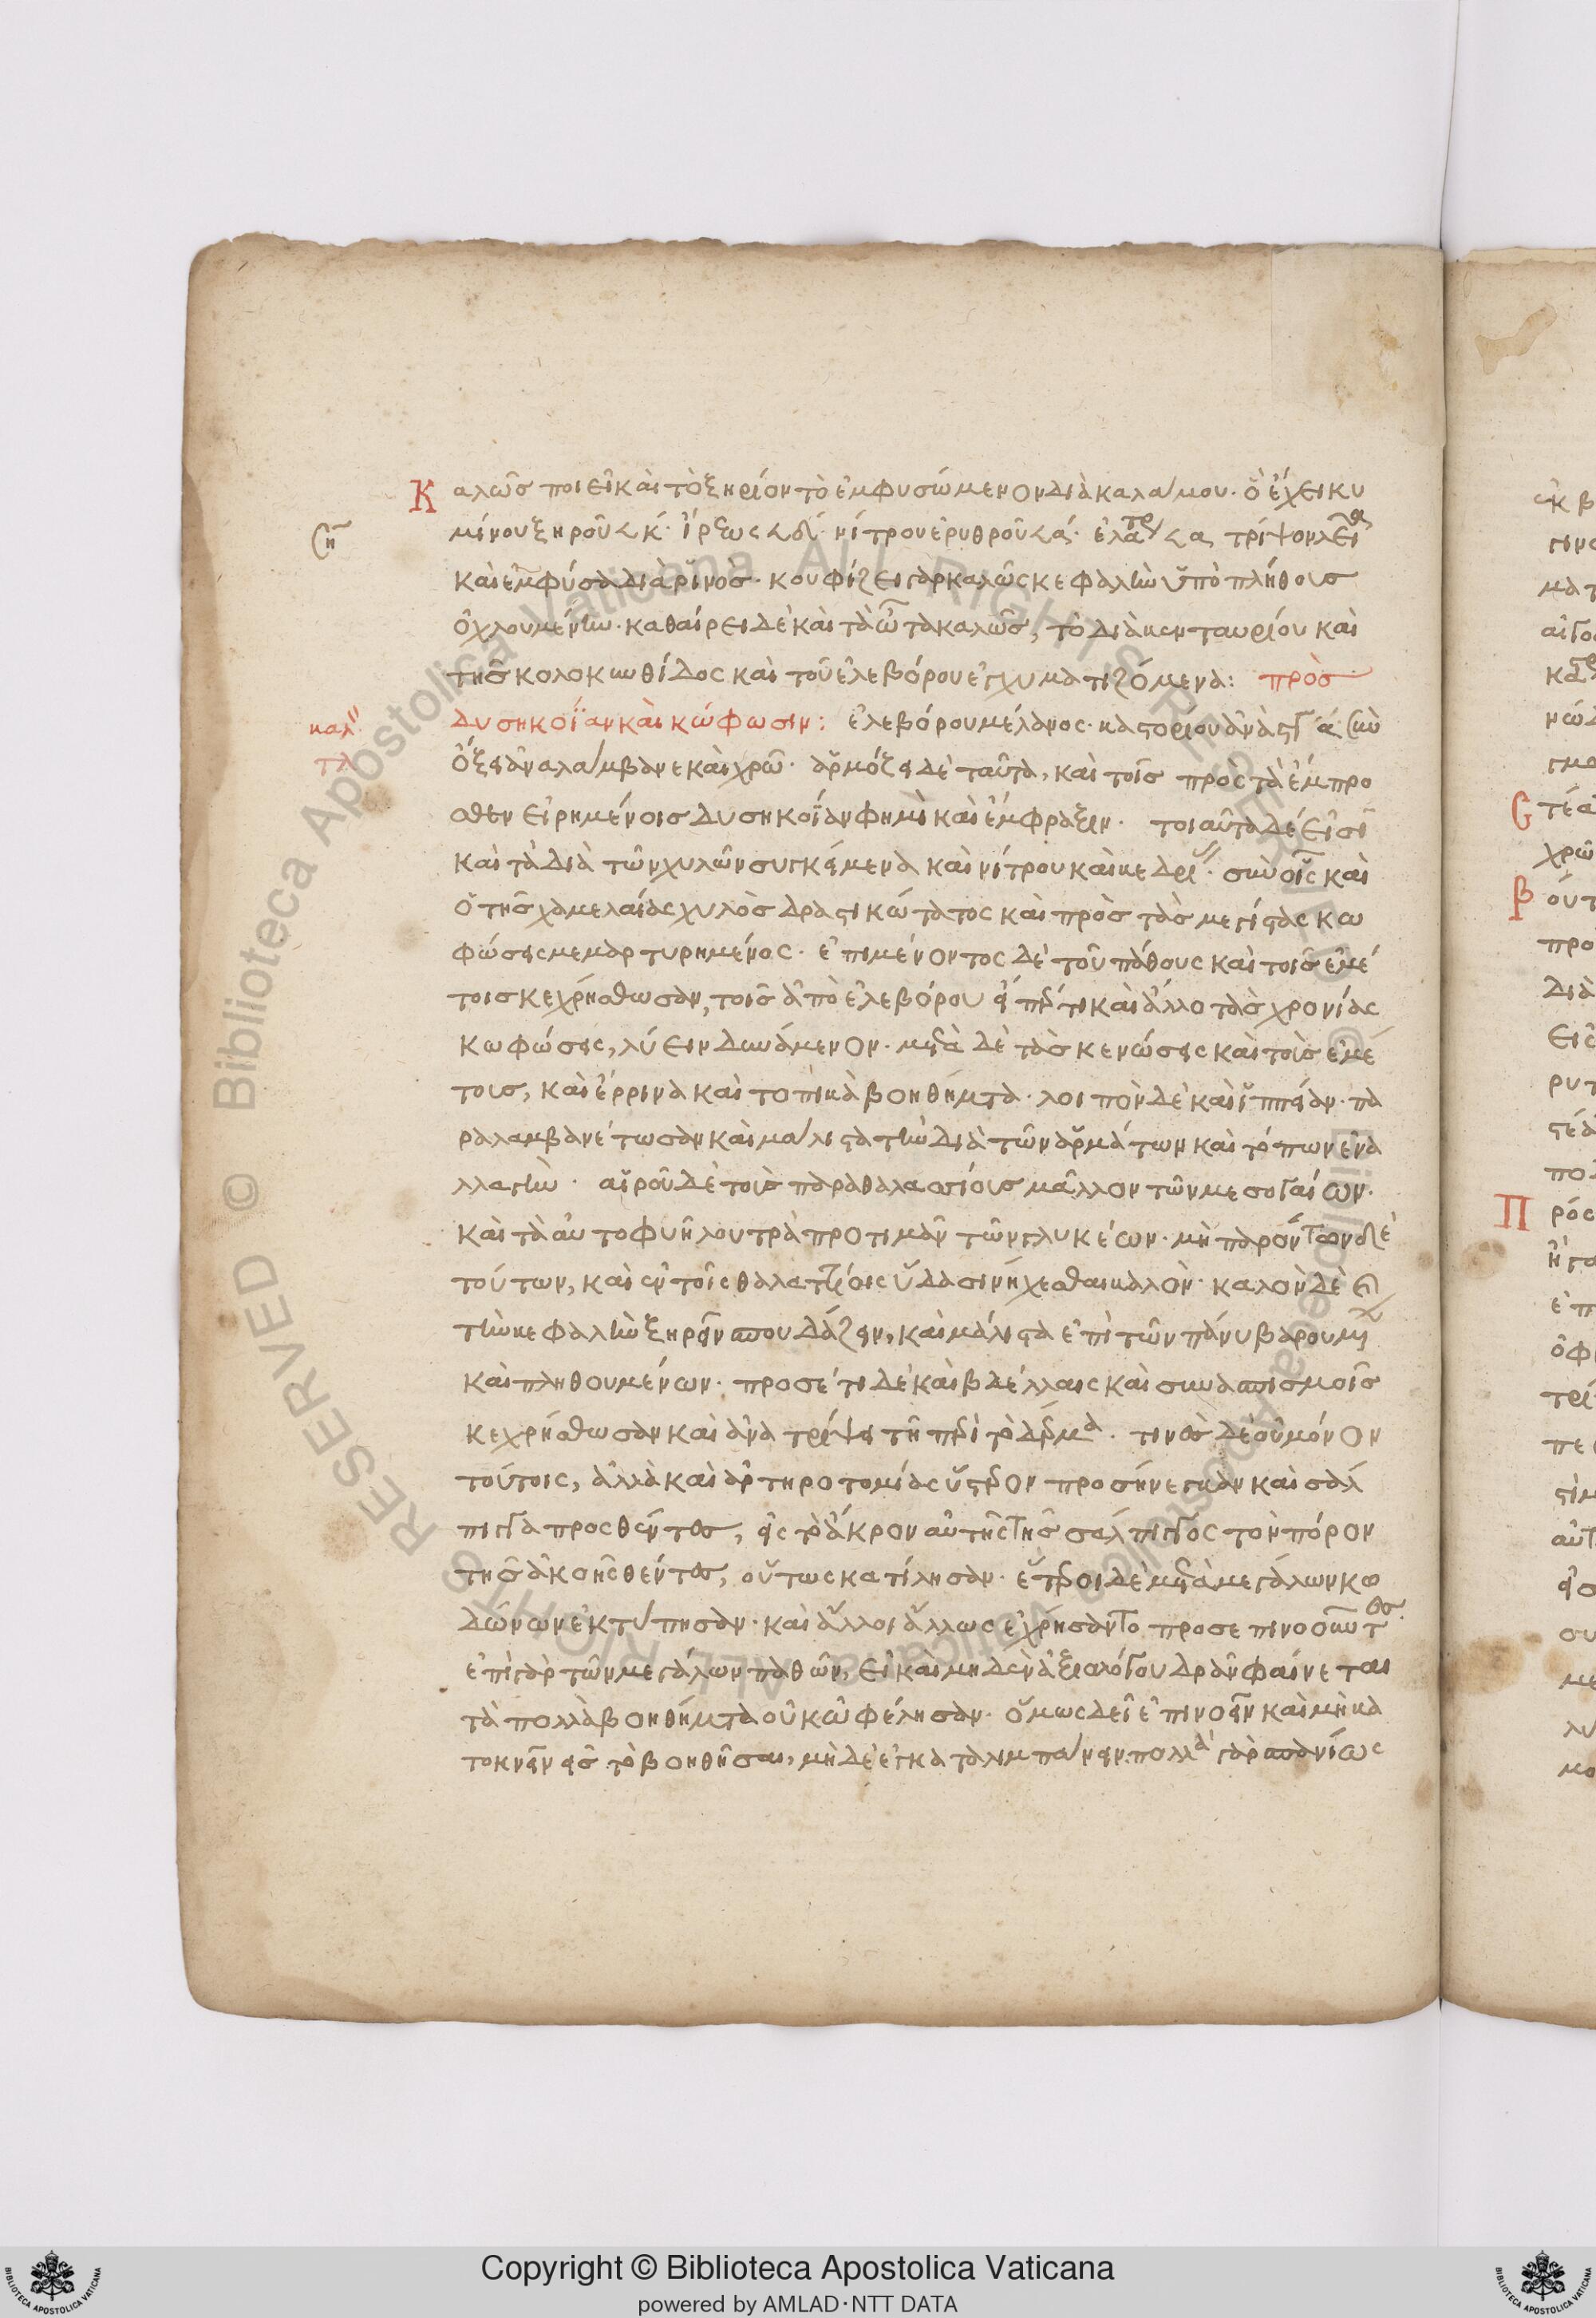 Καλῶς ποιεῖ καὶ τὸ ξηρίον τὸ ἐμφυσώμενον διὰ καλάμου· ὃ ἔχει κυ
μίνου ξηροῦ κ´· ἴρεως δ´ νίτρου ἐρυθροῦ α´·
καὶ ἐμφύσα διὰ ρινὸς· κουφίζει γὰρ καλῶς κεφαλὴν ὑπὸ πλήθους
ὀχλουμένην· καθαίρει δὲ καὶ τὰ ὦτα καλῶς, τὸ διὰ κενταυρίου καὶ
τῆς κολοκυνθίδος καὶ τοῦ ἐλεβόρου ἐγχυματιζόμενα: πρὸς
δυσηκοΐαν καὶ κώφωσιν: ἐλεβόρου μέλανος· καστορίου ἀνὰ
ὄξει ἀναλάμβανε καὶ χρῶ· ἁρμόζει δὲ ταῦτα, καὶ τοῖς πρὸς τὰ ἔμπρο
σθεν εἰρημένοις δυσηκοΐαν φημὶ καὶ ἔμφραξιν· τοιαῦτα δέ εἰσι
καὶ τὰ διὰ τῶν χυλῶν συγκείμενα καὶ νίτρου καὶ κεδρί· σὺν οἷς καὶ
ὁ τῆς χαμελαίας χυλὸς δραστικώτατος καὶ πρὸς τὰς μεγίστας κω
φώσεις μεμαρτυρημένος· ἐπιμένοντος δὲ τοῦ πάθους καὶ τοῖς ἐμέ
τοις κεχρήσθωσαν, τοῖς ἀπὸ ἐλεβόρου εἴπερ τι καὶ ἄλλο τὰς χρονίας
κωφώσεις, λύειν δυνάμενον· μετὰ δὲ τὰς κενώσεις καὶ τοὺς ἐμέ
τους, καὶ ἔρρινα καὶ τοπικὰ βοηθήματα· λοιπὸν δὲ καὶ ἱππείαν· πα
ραλαμβανέτωσαν καὶ μάλιστα τὴν διὰ τῶν ἁρμάτων καὶ τόπων ἐνα
λλαγὴν· αἱροῦ δὲ τοὺς παραθαλασσίους μᾶλλον τῶν μεσογαίων·
καὶ τὰ αὐτοφυῆ λουτρὰ προτιμᾶν τῶν γλυκέων· μὴ παρόντων δὲ
τούτων, καὶ ἐν τοῖς θαλαττίοις ὕδασι νήχεσθαι καλὸν· καλὸν δὲ
τὴν κεφαλὴν ξηρὴν σπουδάζειν, καὶ μάλιστα ἐπὶ τῶν πάνυ βαρουμ
καὶ πληθουμένων· προσέτι δὲ καὶ βδέλλαις καὶ σιναπισμοῖς
κεχρήσθωσαν καὶ ἀνατρίψει τῇ περὶ τὸ δέρμα· τινὲς δὲ οὐ μόνον
τούτοις, ἀλλὰ καὶ ἀρτηροτομίας ὕστερον προσήνεγκαν καὶ σάλ
πιγγα προσθέντες, εἰς τὸ ἄκρον αὐτῆς τῆς σάλπιγγος τὸν πόρον
τῆς ἀκοῆς θέντες, οὕτως κατίλησαν· ἕτεροι δὲ μετὰ μεγάλων κω
δώνων ἐκτύπησαν· καὶ ἄλλοι ἄλλως ἐχρήσαντο προσεπινοοῦντες
ἐπὶ γὰρ τῶν μεγάλων παθῶν, εἰ καὶ μηδὲν ἀξιολόγου δρᾶν φαίνεται
τὰ πολλὰ βοηθήματα οὐκ ὠφέλησαν· ὅμως δεῖ ἐπινοεῖν καὶ μὴ κα
τοκνεῖν εἰς τὸ βοηθῆσαι, μὴ δὲ ἐγκαταλιμπάνειν πολλὰ γὰρ σπανίως
Copyright © Biblioteca Apostolica Vaticana
powered by AMLAD·NTT DATA